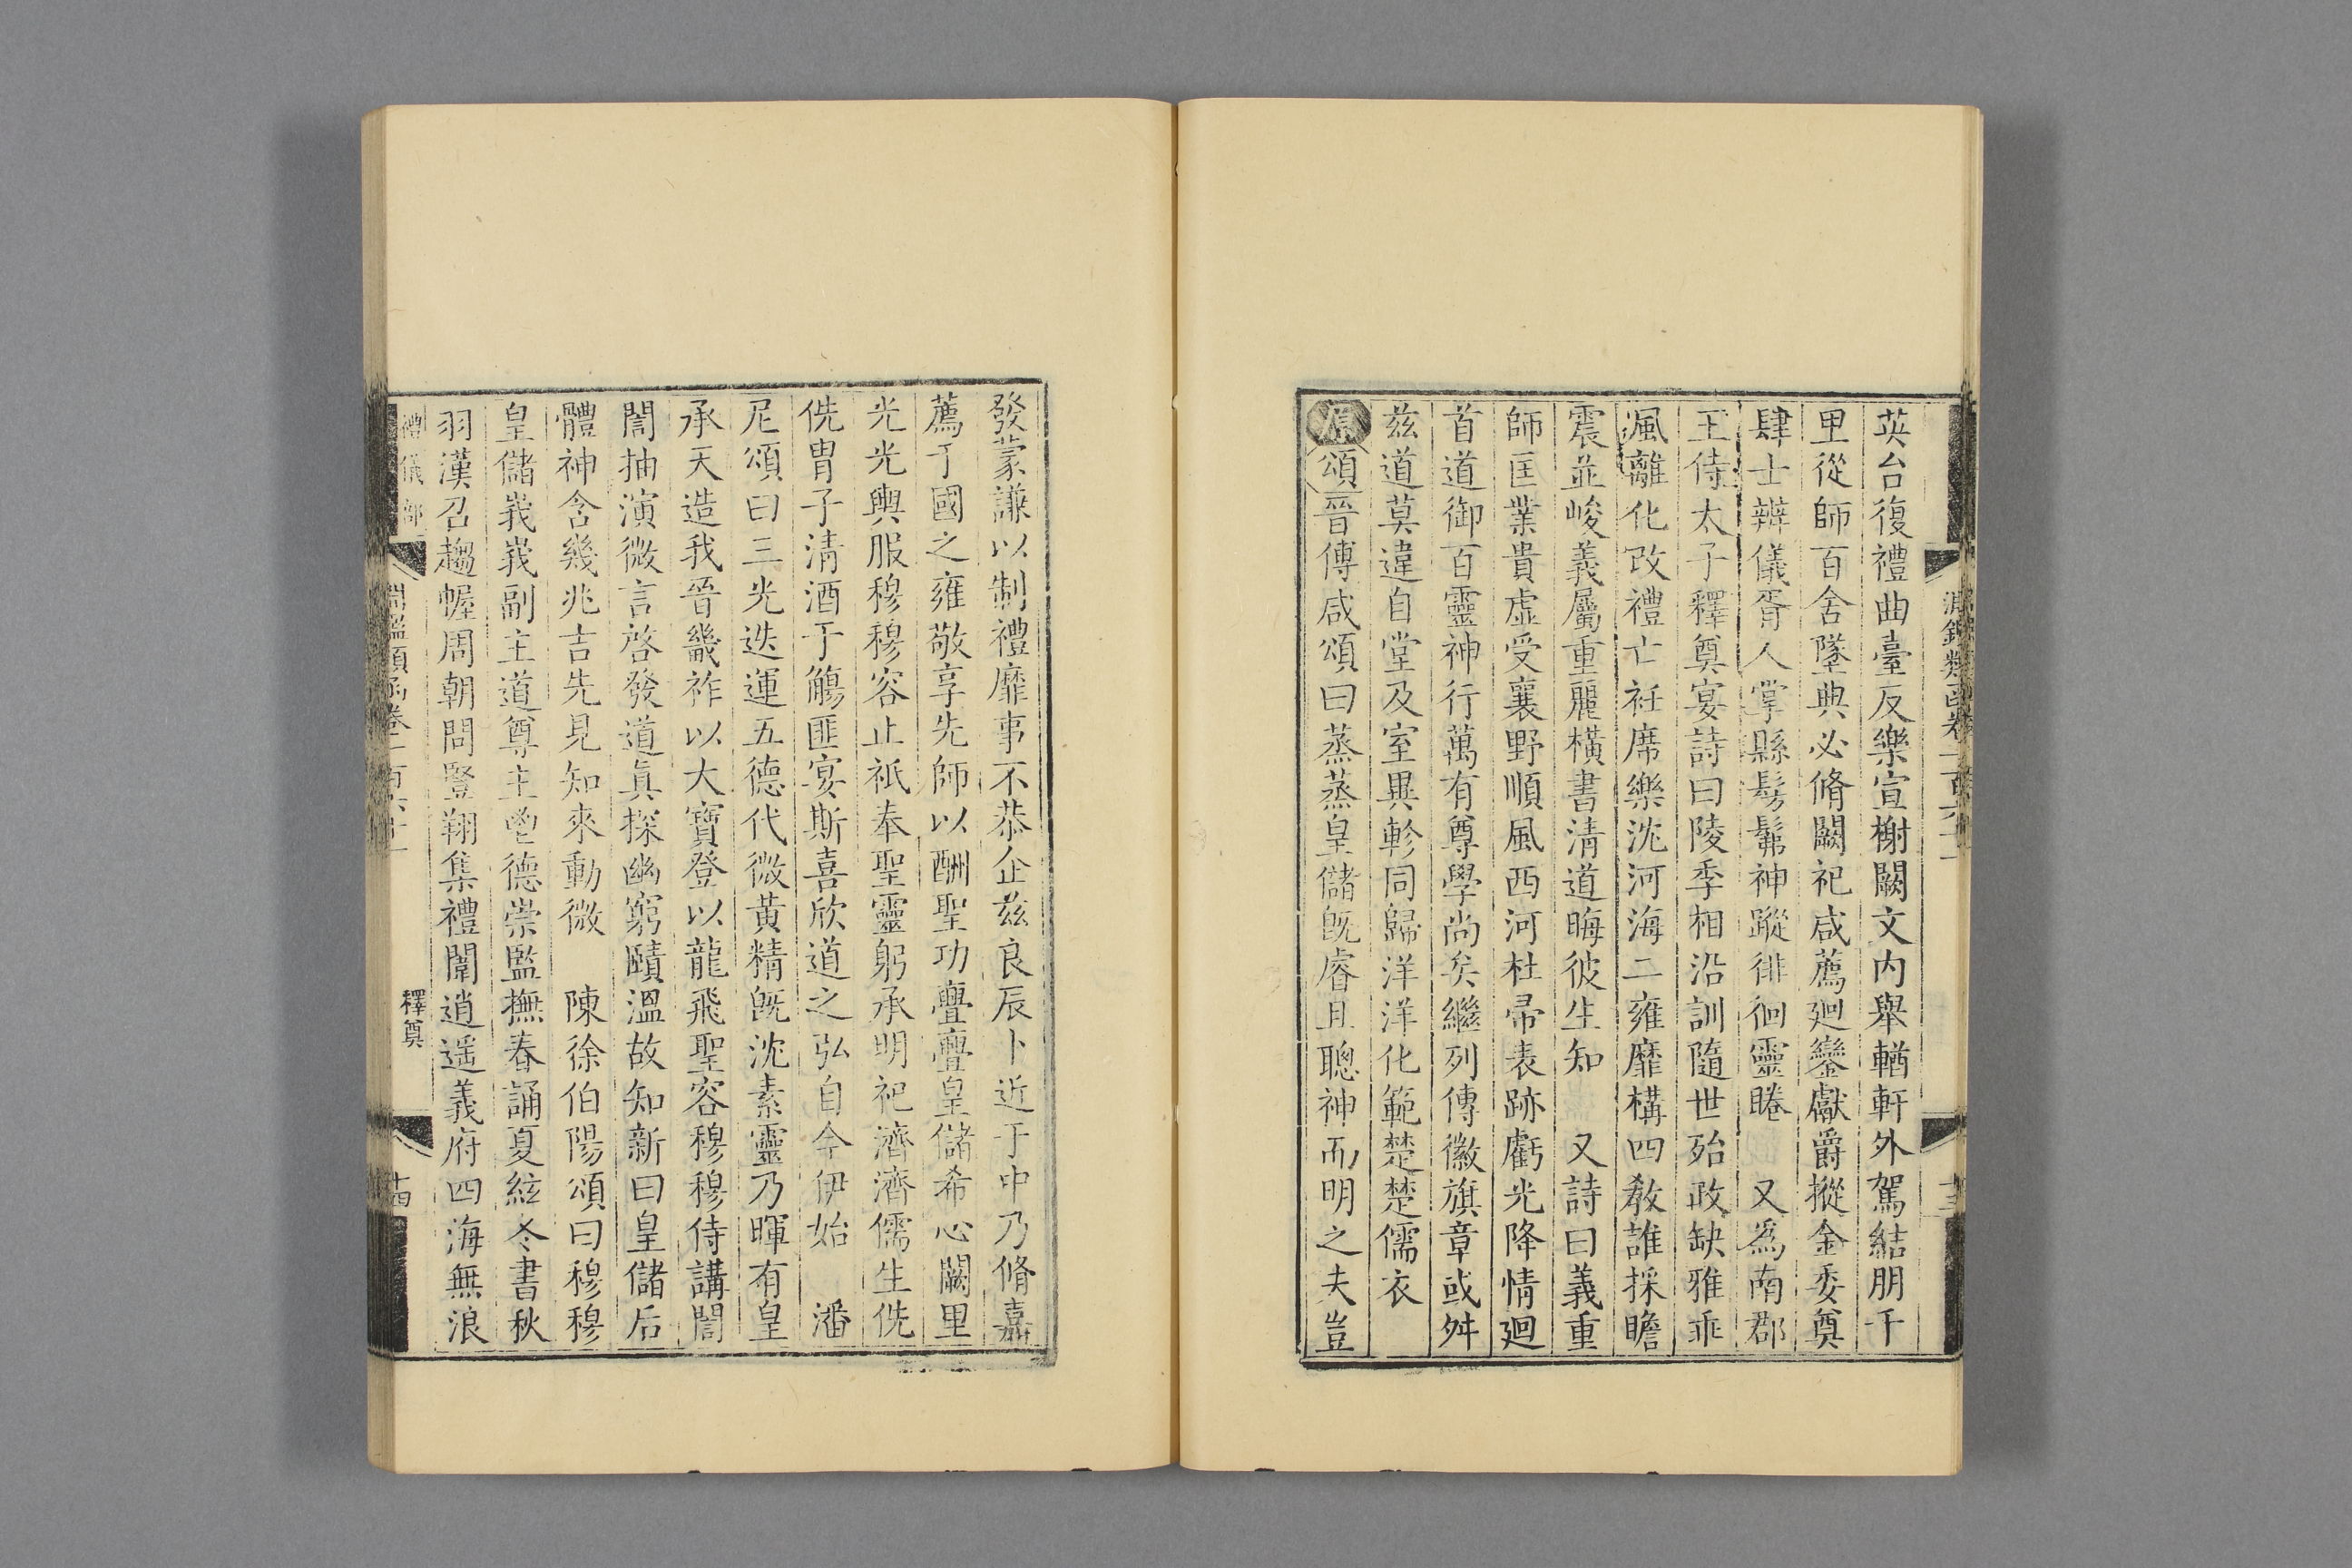 英台復禮曲臺反樂宣榭闕文内舉輶軒外駕結朋千
里從師百舍墜典必脩闕祀咸薦廻鑾獻爵摐金委奠
肆士辨儀胥人掌縣髣髴神蹤徘徊靈睠　又爲南郡
王侍太子釋奠宴詩曰陵季相沿訓隨世殆政缺雅乖
風離化改禮亡衽席樂沈河海二雍靡構四教誰採瞻
震並峻義屬重麗橫書清道晦彼生知　又詩曰義重
師匡業貴虛受襄野順風西河杜帚表跡虧光降情廻
首道御百靈神行萬有尊學尚矣繼列傳徽旗章或舛
兹道莫違自堂及室異軫同歸洋洋化範楚楚儒衣
原頌晉傅咸頌曰蒸蒸皇儲旣睿且聰神而明之夫豈
淵鑑類函卷一百六十一
十三
發蒙謙以制禮靡事不恭企兹良辰卜近于中乃脩嘉
薦于國之雍敬享先師以酬聖功亹亹皇儲希心闕里
光光輿服穆穆容止祇奉聖靈躬承明祀濟濟儒生侁
侁胄子清酒于觴匪宴斯喜欣道之弘自今伊始　潘
尼頌曰三光迭運五德代微黃精旣沈素靈乃暉有皇
承天造我晉畿祚以大寶登以龍飛聖容穆穆侍講誾
誾抽演微言啓發道眞探幽窮賾溫故知新曰皇儲后
體神含幾兆吉先見知來動微　陳徐伯陽頌曰穆穆
皇儲峩峩副主道尊主鬯德崇監撫春誦夏絃冬書秋
羽漢召趨幄周朝問豎翔集禮闈逍遥義府四海無浪
禮儀部一
淵鑑類函卷一百六十一
釋奠
十四